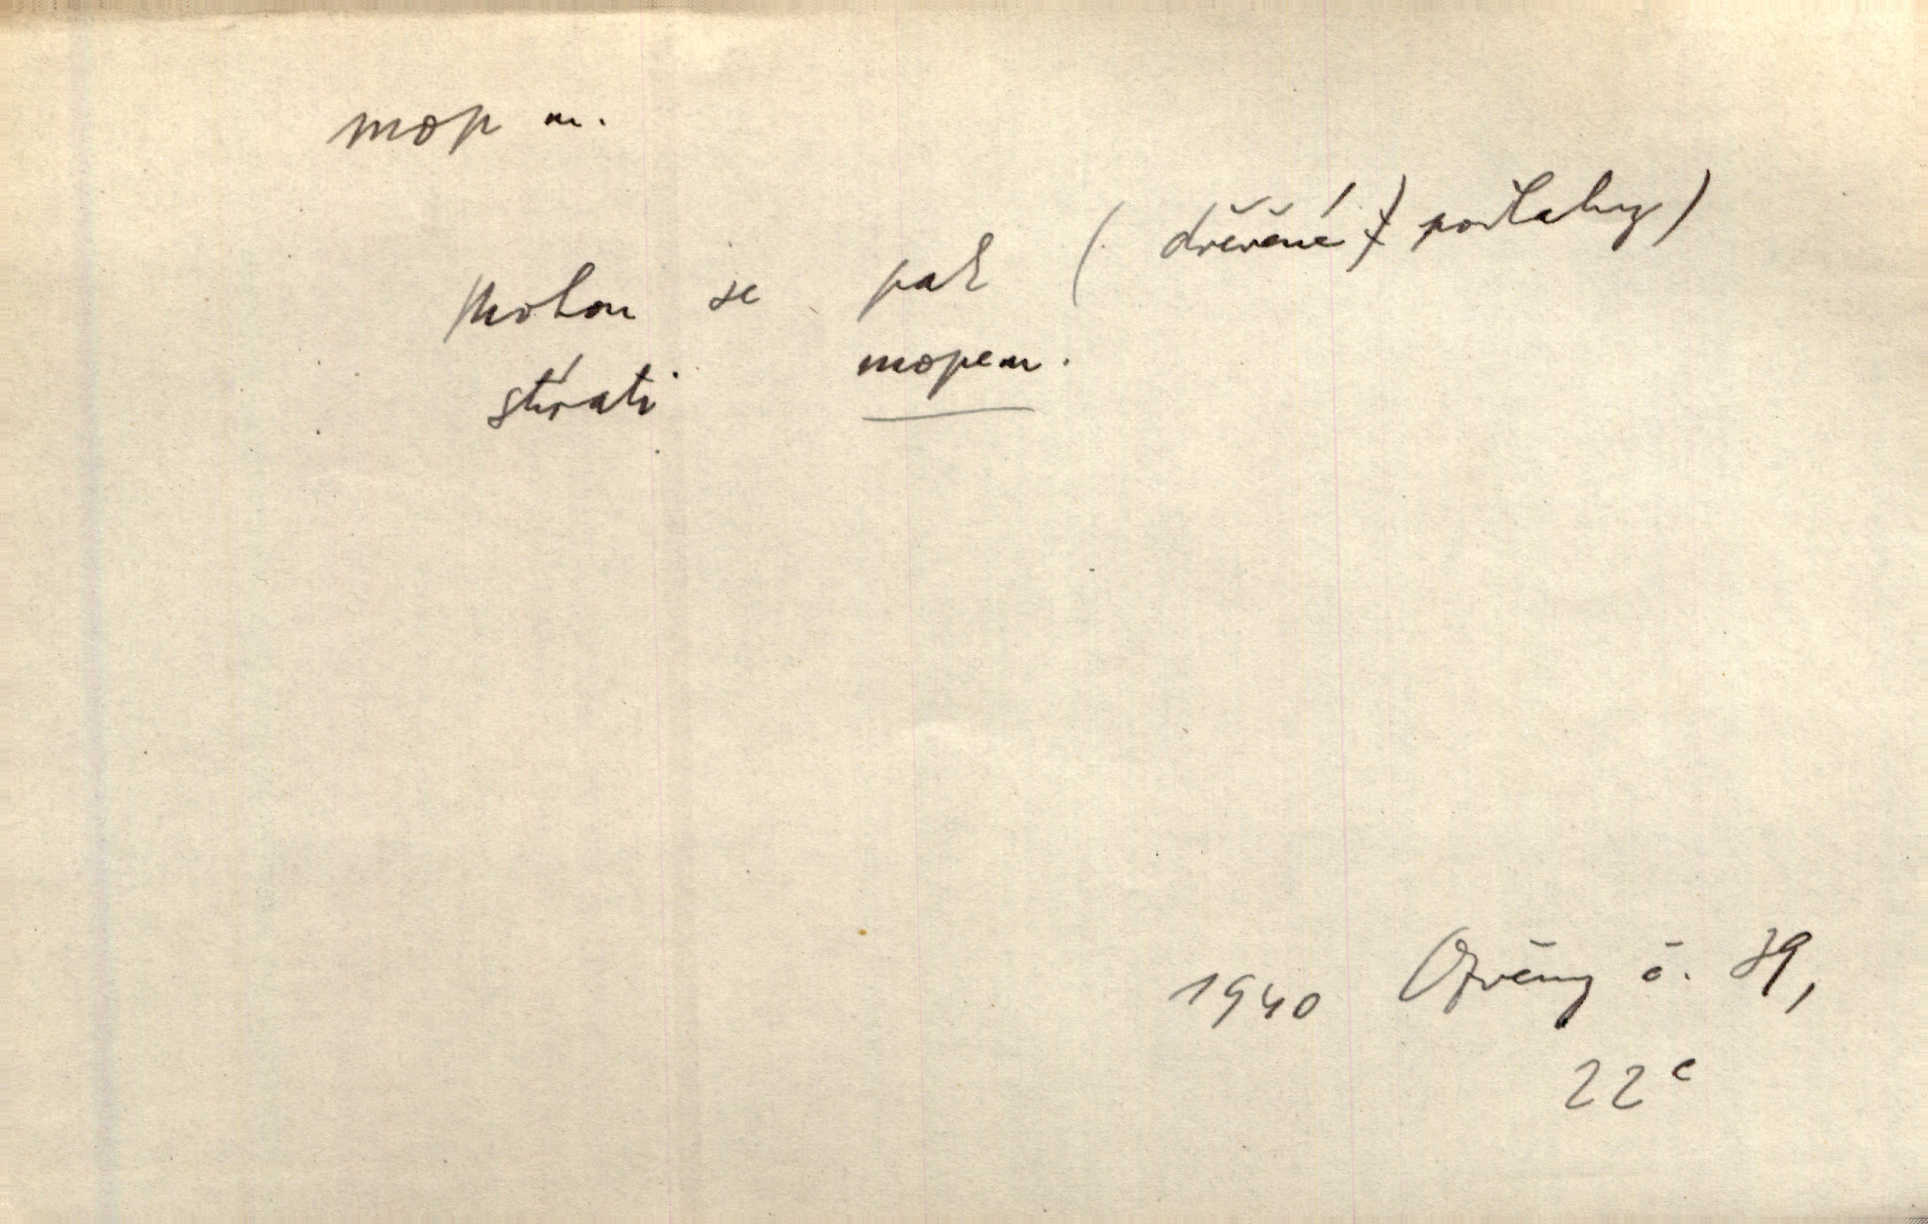 mop m.
Mohou se pak ( dřěvěné podlahy)
stírati mopem.
1940 Ozvěny č. 39,
22c